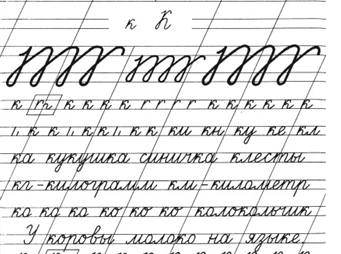 к К
к к к к к г г г г к к к к к к
к к к к ки кн ку ке кл
ка кукушка синичка клесты
кг - килограмм км - километр
ко ко ко ко ко ко колокольчик
У коровы молоко на языке.